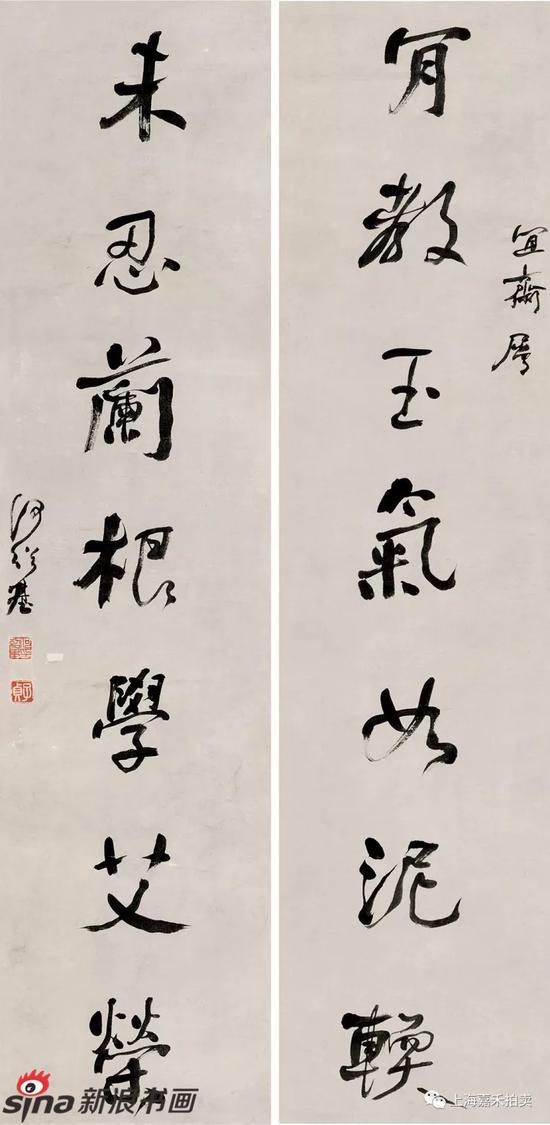 肎教玉氣如泥輭
宜齋屬
未忍蘭根學艾榮
何紹基
子貞
sina新浪书画
上海嘉禾拍卖